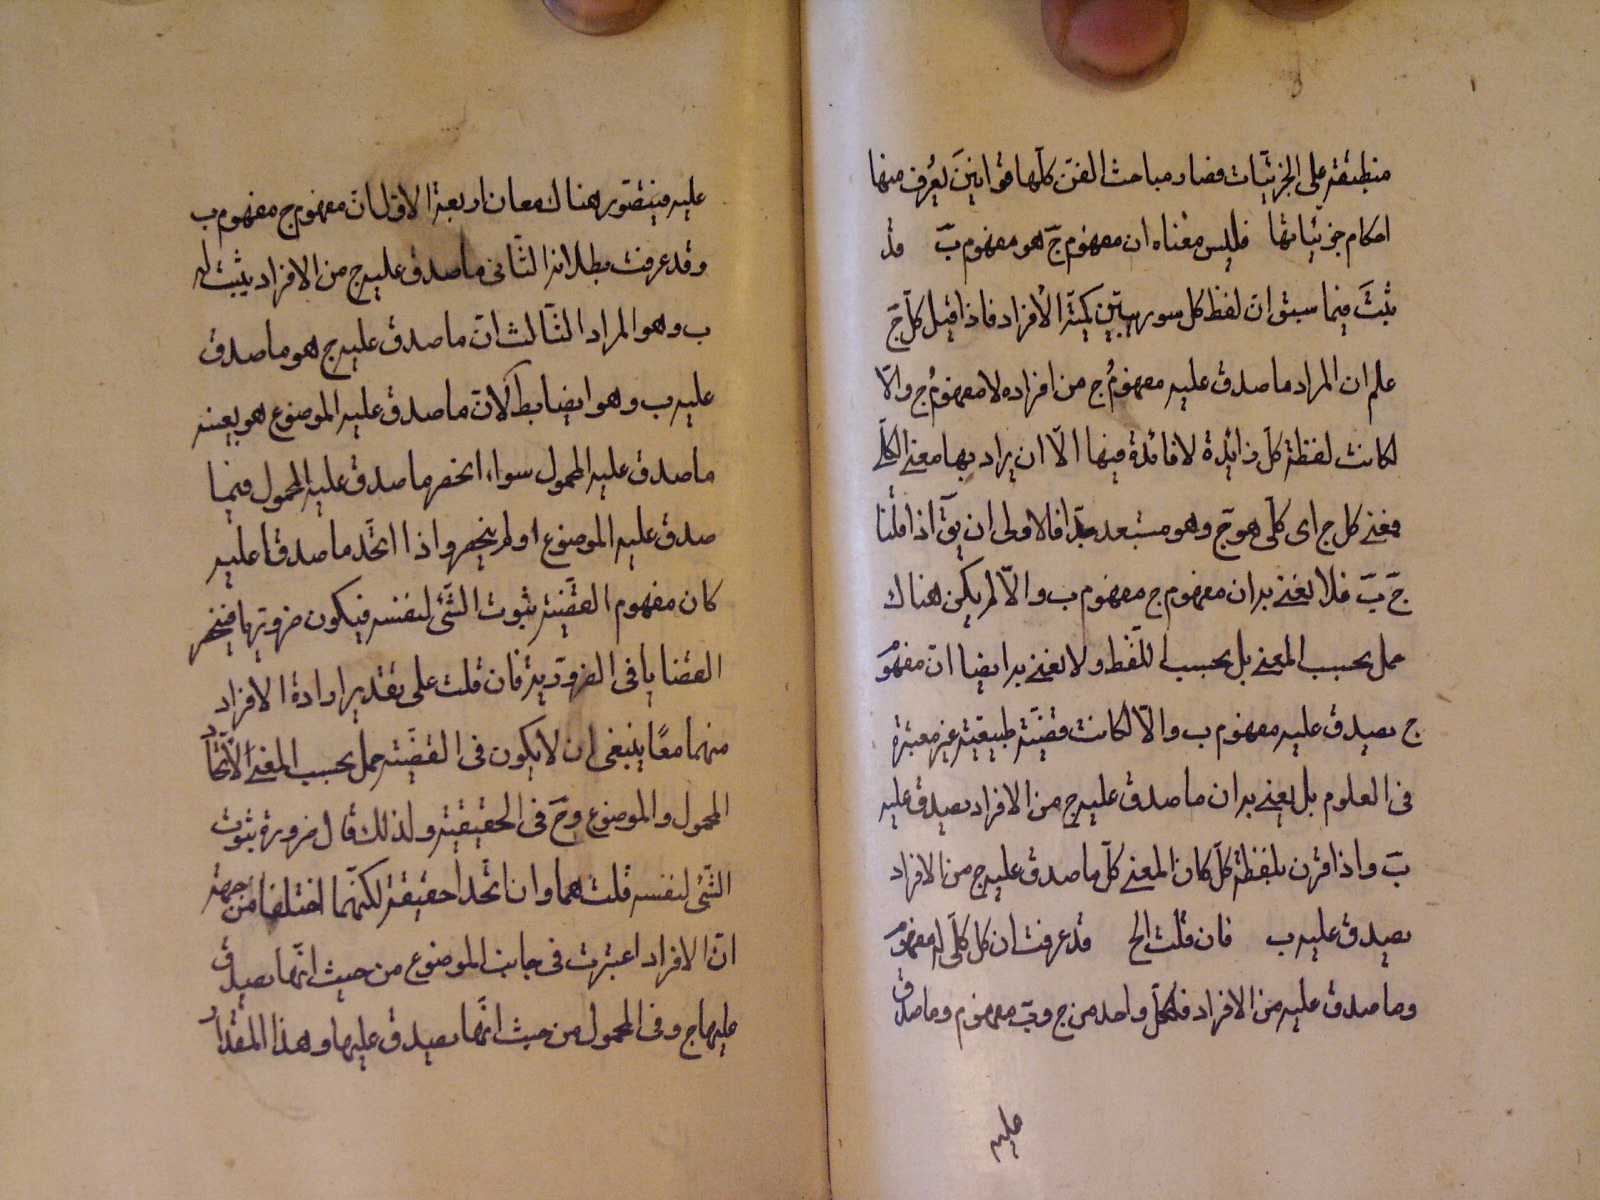 منطبقة على الجزئيّات فصار مباحث الفنّ كلّها قوانين يعرف منها
احكام جزئياتها فليس معناه ان مفهوم جَ هو مفهوم بَ قد
ثبت فيما سبق انّ لفظ كل سور يبيّن كميّة الافراد فاذا قيل كلّ جَ
علم ان المراد ما صدق عليه مفهومُ ج من افراده لا مفهومُ ج والّا
لكانت لفظة كلّ زائدة لا فائدة فيها الّا ان يراد بها معنى الكلّى
فمعنى كل ج اى كلّى هو جَ وهو مستبعد جدّا فالاولى ان يقَ اذا قلنا
جَ بَ فلا نعنى به ان مفهوم ج مفهوم ب والّا لم يكن هناك
حمل بحسب المعنى بل بحسب اللّفظ ولا نعنى به ايضا انّ مفهوم
ج يصدق عليه مفهوم ب والّا لكانت قضيّة طبيعيّة غير معتبرة
فى العلوم بل نعنى به ان ما صدق عليه ج من الافراد يصدق عليه
بَ واذا قرن بلفظة كلّ كان المعنى كلّ ما صدق عليه ج من الافراد
يصدق عليه ب فان قلت الخ قد عرفت ان كل كلّى له مفهوم
وما صدق عليه من الافراد فلكلّ واحد من ج وبَ مفهوم وما صدق
عليه
عليه فيتصّور هناك معان اربعة الاوّل انّ مفهوم ج مفهوم ب
وقد عرفت بطلانه الثّانى ما صدق عليه ج من الافراد يثبت له
ب وهو المراد الثّالث انّ ما صدق عليه ج هو ما صدق
عليه ب وهو ايضا بط لانّ ما صدق عليه الموضوع هو بعينه
ما صدق عليه المحمول سواء انحصر ما صدق عليه المحمول فيما
صدق عليه الموضوع او لم ينحصر واذا اتحّد ما صدقا عليه
كان مفهوم القضّية ثبوت الشّئ لنفسه فيكون ضروريّا فينحصر
القضايا فى الضروريّة فان قلت على تقدير ارادة الافراد
منهما معًا ينبغى ان لا يكون فى القضيّة حمل بحسب المعنى لاتّحاد
المحمول والموضوع وحَ فى الحقيقية ولذلك قال ضرورة ثبوت
الشّئ لنفسه قلت هما وان اتّحدا حقيقة لكنّهما اختلفا من جهة
انّ الافراد اعتبرت فى جانب الموضوع من حيث انّها يصدق
عليها ج وفى المحمول من حيث انّها يصدق عليها وهذا المقدار